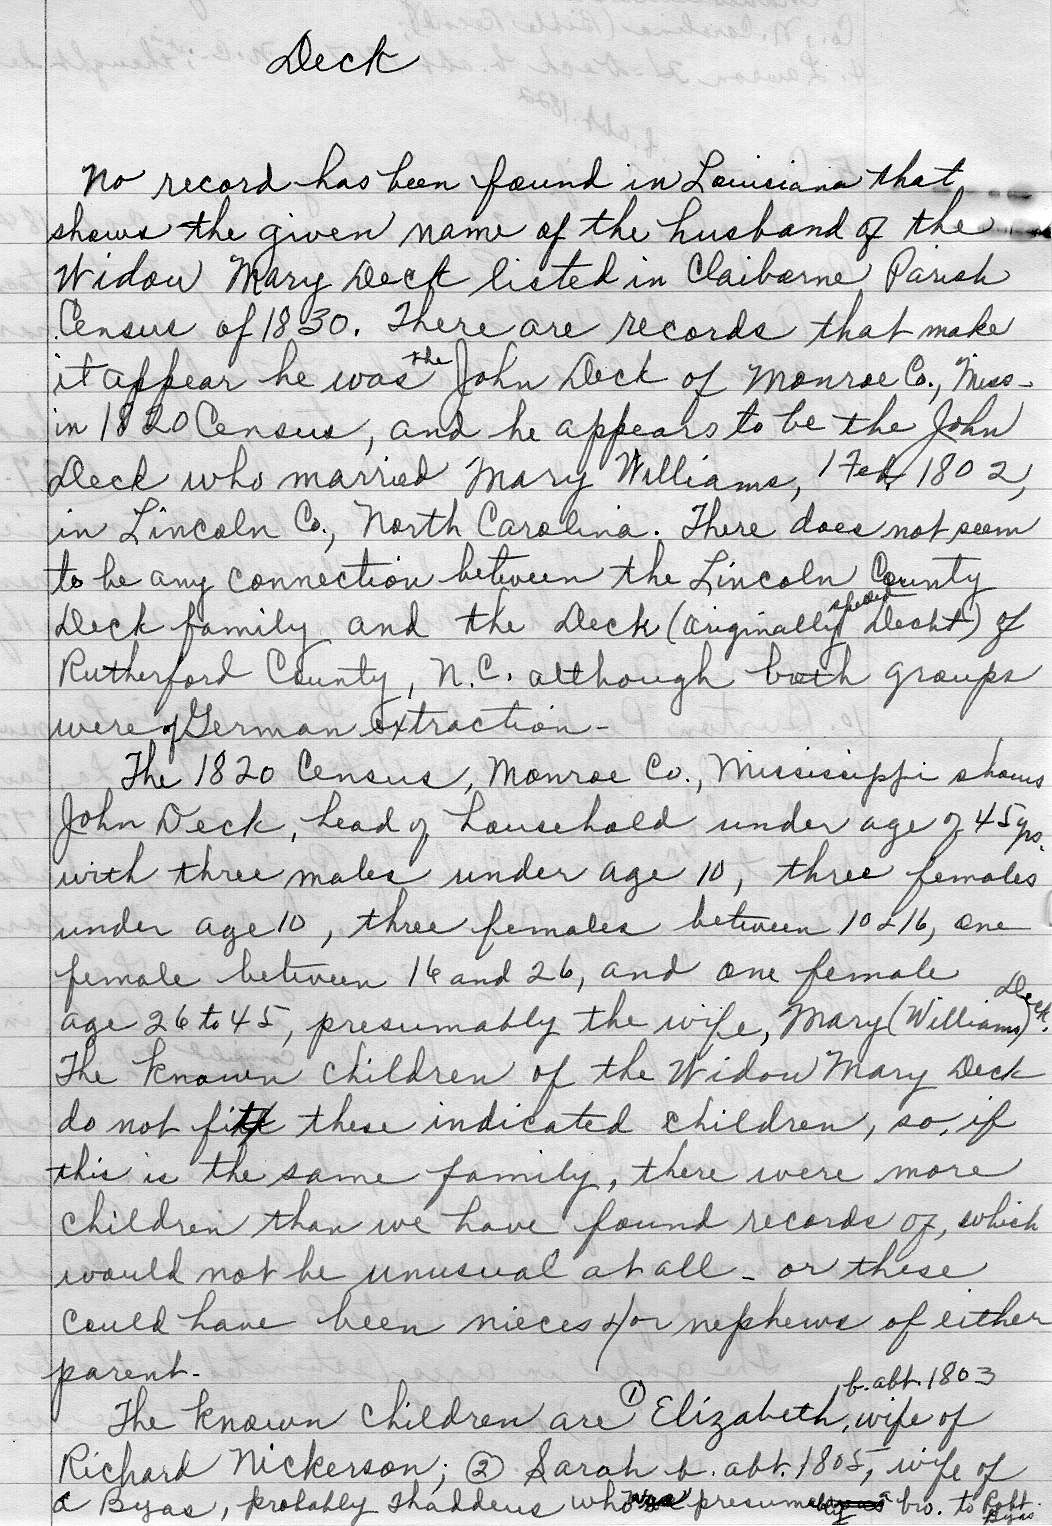 Deck
No record has been found in Louisiana that
shows the given name of the husband of the
Widow Mary Deck listed in Claiborne Parish
Census of 1830. There are records that make
it appear he was the John Deck of Monroe Co., Miss-
in 1820 Census, and he appears to be the John
Deck who married Mary Williams, 1 Feb. 1802,
in Lincoln Co., North Carolina. There does not seem
to be any connection between the Lincoln County
Deck family and the Deck (originally spelled Decht) of
Rutherford County, N.C. although both groups
were of German extraction-
The 1820 Census, Monroe Co., Mississippi shows
John Deck, head of household under age of 45 yrs.
with three males under age 10, three females
under age 10, three females between 10 & 16, one
female between 16 and 26, and one female
age 26 to 45, presumably the wife, Mary (Williams) Deck.
The known children of the Widow Mary Deck
do not fit these indicated children, so, if
this is the same family, there were more
children than we have found records of, which
would not be unusual at all - or these
could have been nieces &/or nephews of either
parent-
The known children are ① Elizabeth, b. abt. 1803 wife of
Richard Nickerson; ② Sarah b. abt. 1805, wife of
a Byas, probably Thaddeus who was presumably a bro. to Robt. Byas